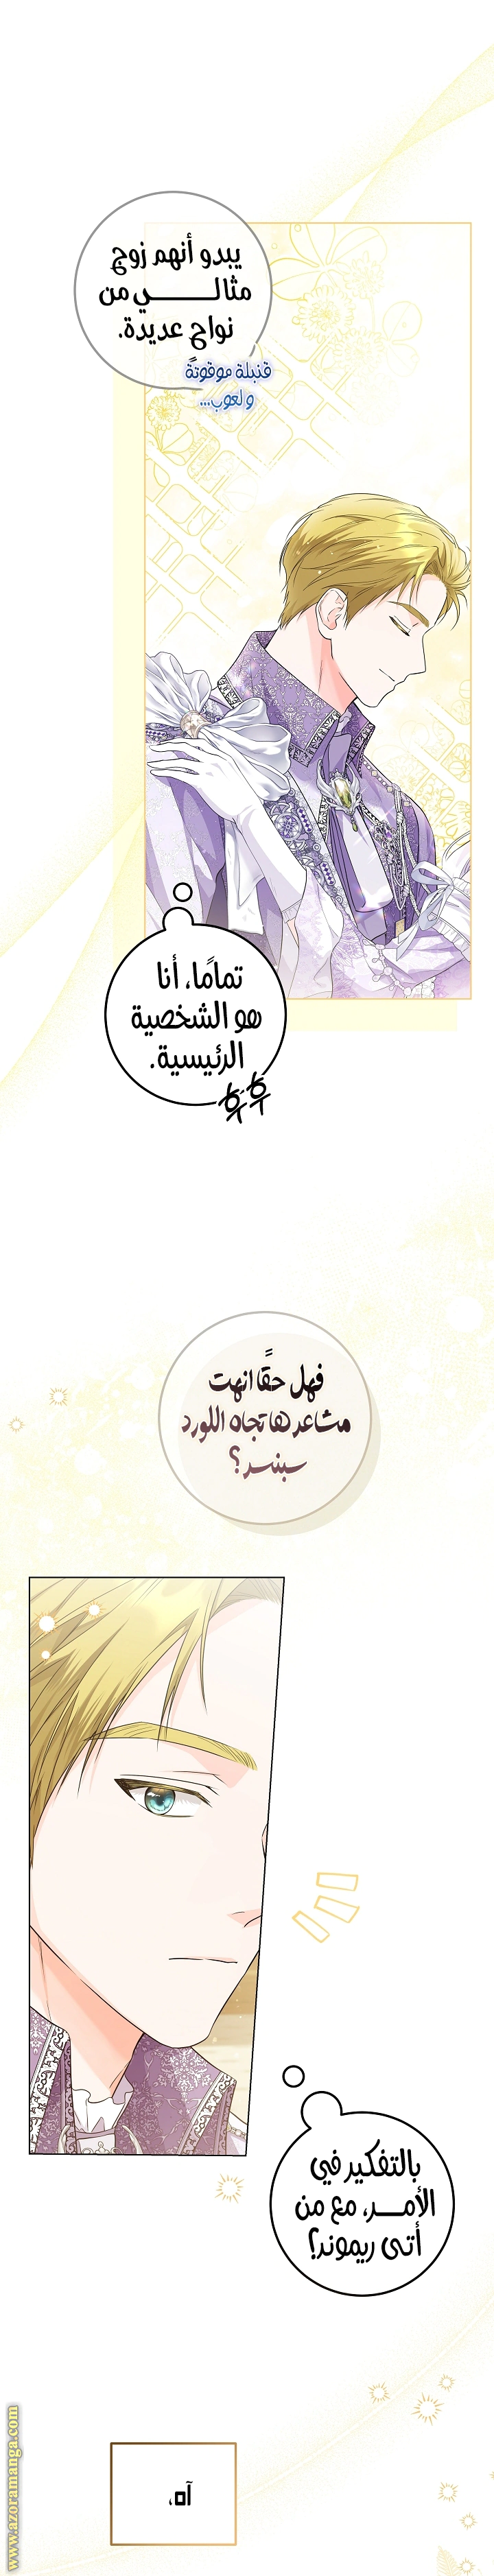 يبدو أنهم زوج
مثالـــــــي من
نواحٍ عديدة.
قنبلة موقوتةً
و لعوب...
تمامًا، أنا
هو الشخصية
الرئيسية.
후후
فهل حقًا انهت
مشاعرها تجاه اللورد
سبنسر؟
بالتفكير في
الأمـــر، مع من
أتى ريموند؟
آه،
www.azoramanga.com